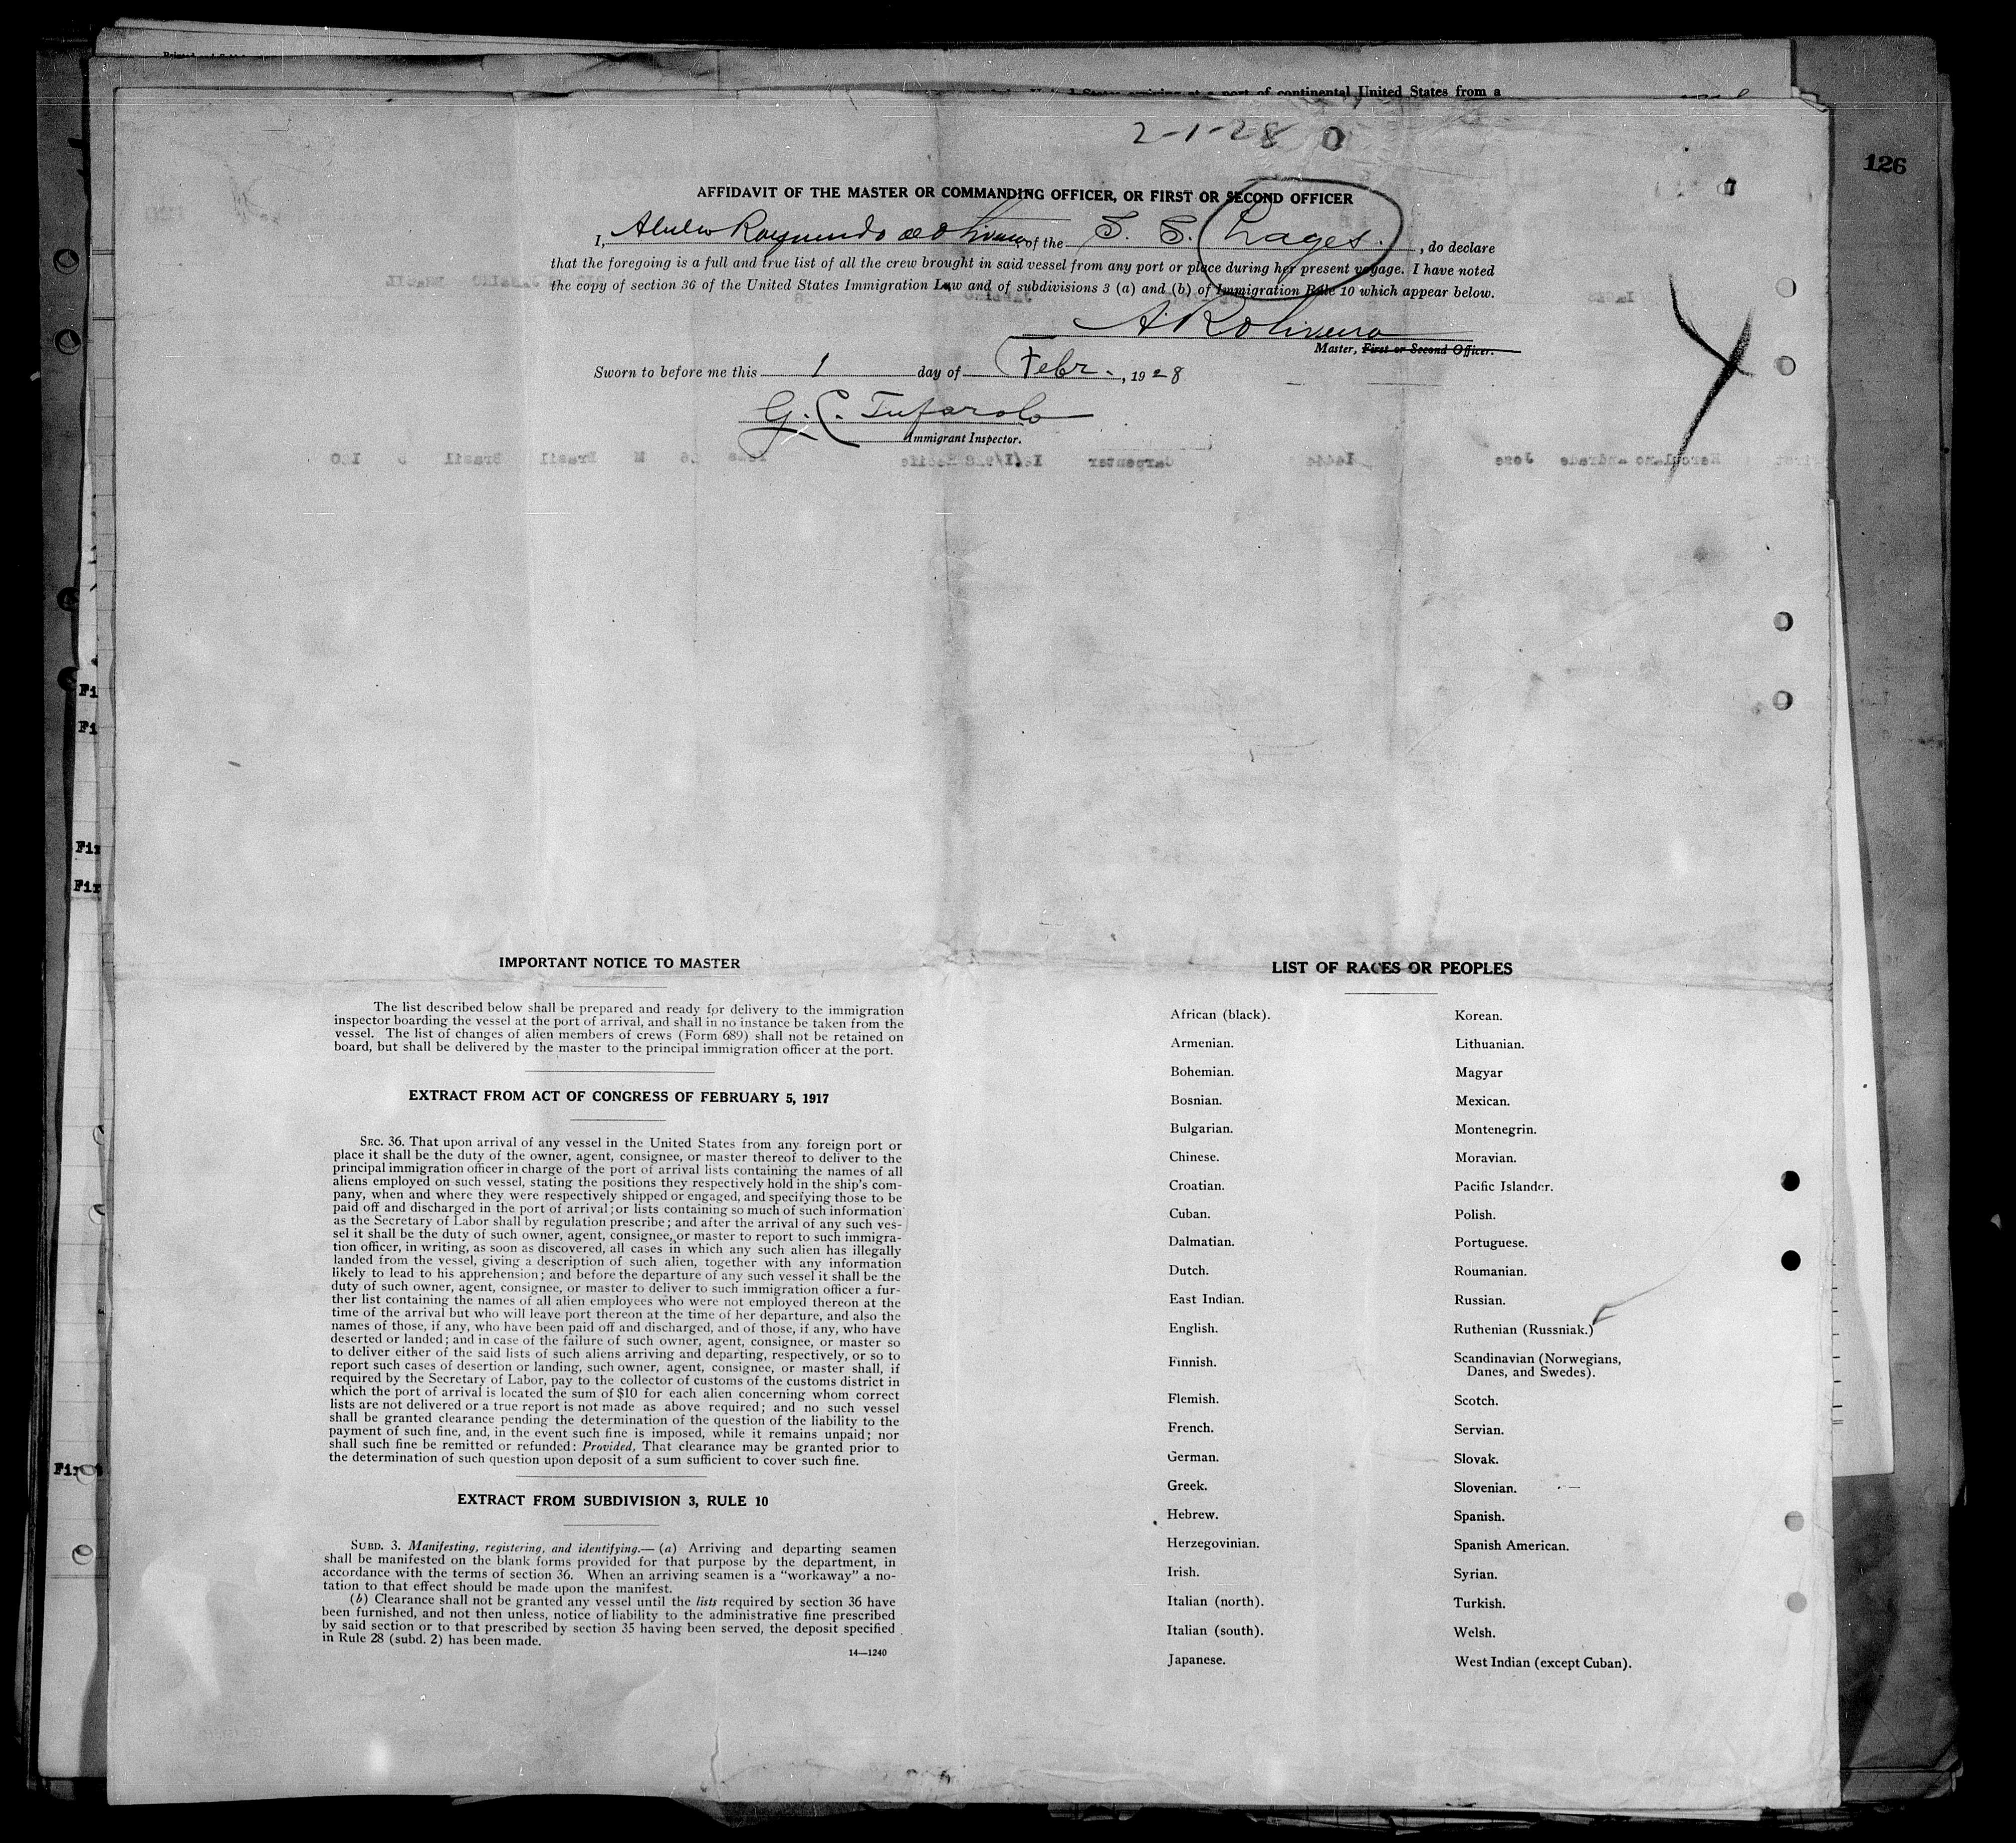 continental United States from a
2-1-28
126
AFFIDAVIT OF THE MASTER OR COMMANDING OFFICER, OR FIRST OR SECOND OFFICER
I, Raymundo de Oliveira, of the S. S. Lages., do declare
that the foregoing is a full and true list of all the crew brought in said vessel from any port or place during her present voyage. I have noted
the copy of section 36 of the United States Immigration Law and of subdivisions 3 (a) and (b) of Immigration Rule 10 which appear below.
A R Oliveira
Master, First or Second Officer.
Sworn to before me this 1 day of Febr., 1928
G. C. Tufarolo
Immigrant Inspector.
Fi
Fi
Fir
Fir
Fir
IMPORTANT NOTICE TO MASTER
The list described below shall be prepared and ready for delivery to the immigration
inspector boarding the vessel at the port of arrival, and shall in no instance be taken from the
vessel. The list of changes of alien members of crews (Form 689) shall not be retained on
board, but shall be delivered by the master to the principal immigration officer at the port.
EXTRACT FROM ACT OF CONGRESS OF FEBRUARY 5, 1917
SEC. 36. That upon arrival of any vessel in the United States from any foreign port or
place it shall be the duty of the owner, agent, consignee, or master thereof to deliver to the
principal immigration officer in charge of the port of arrival lists containing the names of all
aliens employed on such vessel, stating the positions they respectively hold in the ship's com-
pany, when and where they were respectively shipped or engaged, and specifying those to be
paid off and discharged in the port of arrival; or lists containing so much of such information
as the Secretary of Labor shall by regulation prescribe; and after the arrival of any such ves-
sel it shall be the duty of such owner, agent, consignee, or master to report to such immigra-
tion officer, in writing, as soon as discovered, all cases in which any such alien has illegally
landed from the vessel, giving a description of such alien, together with any information
likely to lead to his apprehension; and before the departure of any such vessel it shall be the
duty of such owner, agent, consignee, or master to deliver to such immigration officer a fur-
ther list containing the names of all alien employees who were not employed thereon at the
time of the arrival but who will leave port thereon at the time of her departure, and also the
names of those, if any, who have been paid off and discharged, and of those, if any, who have
deserted or landed; and in case of the failure of such owner, agent, consignee, or master so
to deliver either of the said lists of such aliens arriving and departing, respectively, or so to
report such cases of desertion or landing, such owner, agent, consignee, or master shall, if
required by the Secretary of Labor, pay to the collector of customs of the customs district in
which the port of arrival is located the sum of $10 for each alien concerning whom correct
lists are not delivered or a true report is not made as above required; and no such vessel
shall be granted clearance pending the determination of the question of the liability to the
payment of such fine, and, in the event such fine is imposed, while it remains unpaid; nor
shall such fine be remitted or refunded: Provided, That clearance may be granted prior to
the determination of such question upon deposit of a sum sufficient to cover such fine.
EXTRACT FROM SUBDIVISION 3, RULE 10
SUBD. 3. Manifesting, registering, and identifying.— (a) Arriving and departing seamen
shall be manifested on the blank forms provided for that purpose by the department, in
accordance with the terms of section 36. When an arriving seamen is a "workaway" a no-
tation to that effect should be made upon the manifest.
(b) Clearance shall not be granted any vessel until the lists required by section 36 have
been furnished, and not then unless, notice of liability to the administrative fine prescribed
by said section or to that prescribed by section 35 having been served, the deposit specified
in Rule 28 (subd. 2) has been made.
14—1240
LIST OF RACES OR PEOPLES
African (black).
Armenian.
Bohemian.
Bosnian.
Bulgarian.
Chinese.
Croatian.
Cuban.
Dalmatian.
Dutch.
East Indian.
English.
Finnish.
Flemish.
French.
German.
Greek.
Hebrew.
Herzegovinian.
Irish.
Italian (north).
Italian (south).
Japanese.
Korean.
Lithuanian.
Magyar
Mexican.
Montenegrin.
Moravian.
Pacific Islander.
Polish.
Portuguese.
Roumanian.
Russian.
Ruthenian (Russniak.)
Scandinavian (Norwegians,
Danes, and Swedes).
Scotch.
Servian.
Slovak.
Slovenian.
Spanish.
Spanish American.
Syrian.
Turkish.
Welsh.
West Indian (except Cuban).